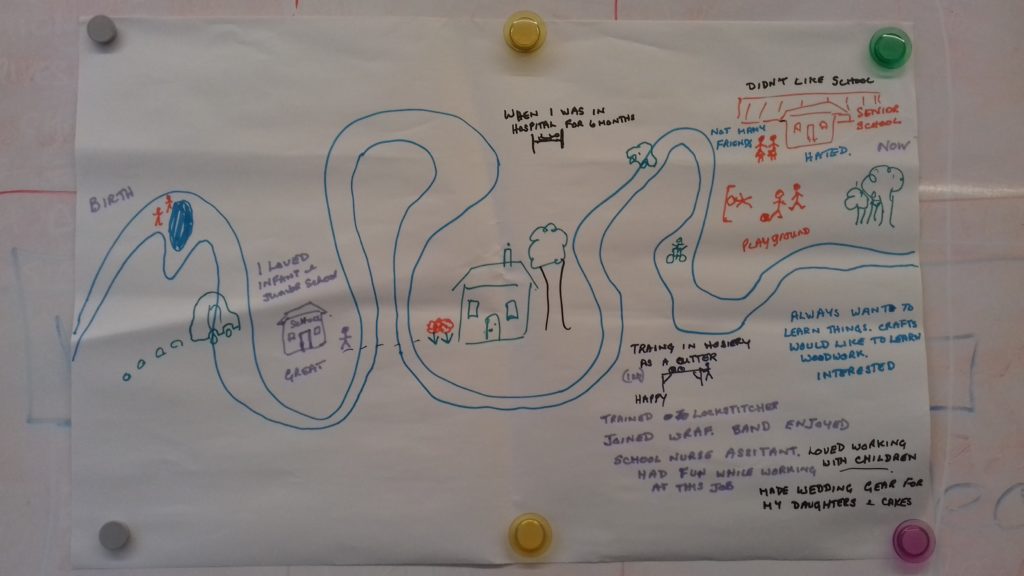 BIRTH
I LOVED
INFANT &
JUNIOR SCHOOL
SCHOOL
GREAT
WHEN I WAS IN
HOSPITAL FOR 6 MONTHS
DIDN'T LIKE SCHOOL
SENIOR
SCHOOL
NOT MANY
FRIENDS
HATED.
NOW
PLAYGROUND
ALWAYS WANT TO
LEARN THINGS. CRAFTS
WOULD LIKE TO LEARN
WOODWORK.
INTERESTED
TRAING IN HOSIERY
AS A CUTTER
HAPPY
TRAINED LOCKSTITCHER
JOINED WRAF. BAND ENJOYED
SCHOOL NURSE ASSITANT. LOVED WORKING
WITH CHILDREN
HAD FUN WHILE WORKING
AT THIS JOB
MADE WEDDING GEAR FOR
MY DAUGHTERS & CAKES